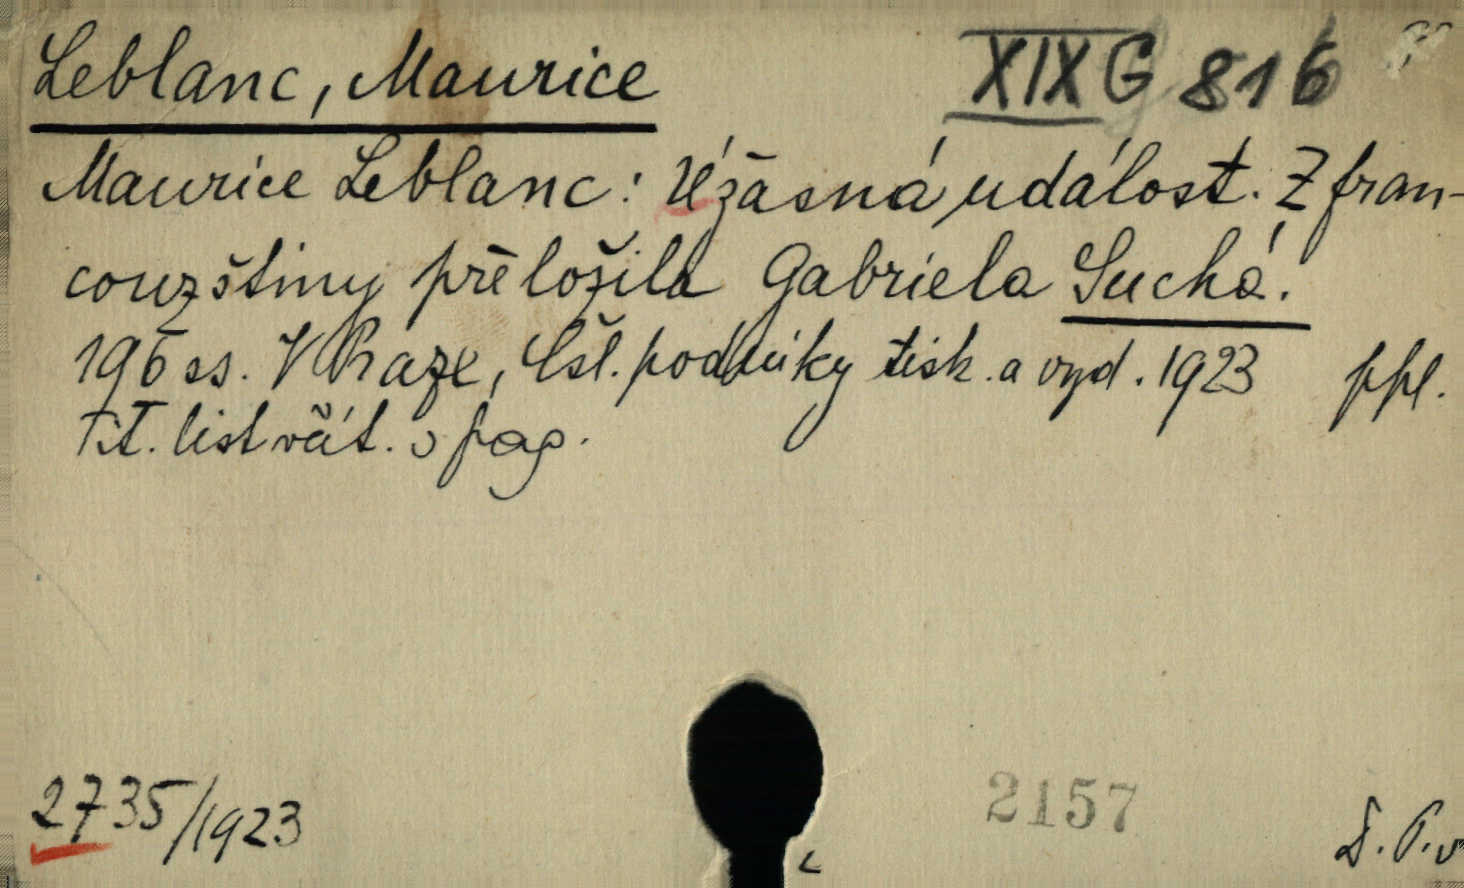 Leblanc, Maurice
XIX G 816
Maurice Leblanc: Úžasná událost. Z fran-
couzštiny přeložila Gabriela Suchá.
196 ss. V Praze, Čsl. podniky tisk. a vyd. 1923 ppl.
Tit. list včít. v pag.
2735/1923
2157